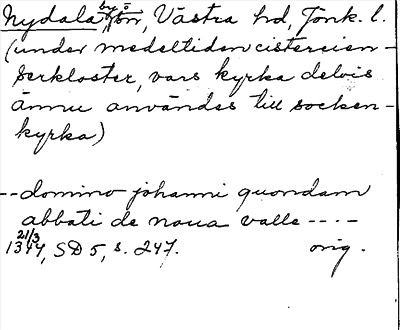 Nydala by, Västra hd, Jönk. l.
(under medeltiden cistercien-
serkloster, vars kyrka delvis
ännu användes till socken-
kyrka)
-- domino johanni quondam
abbati de noua valle ----
21/3
1344, SD 5, s. 247. orig.